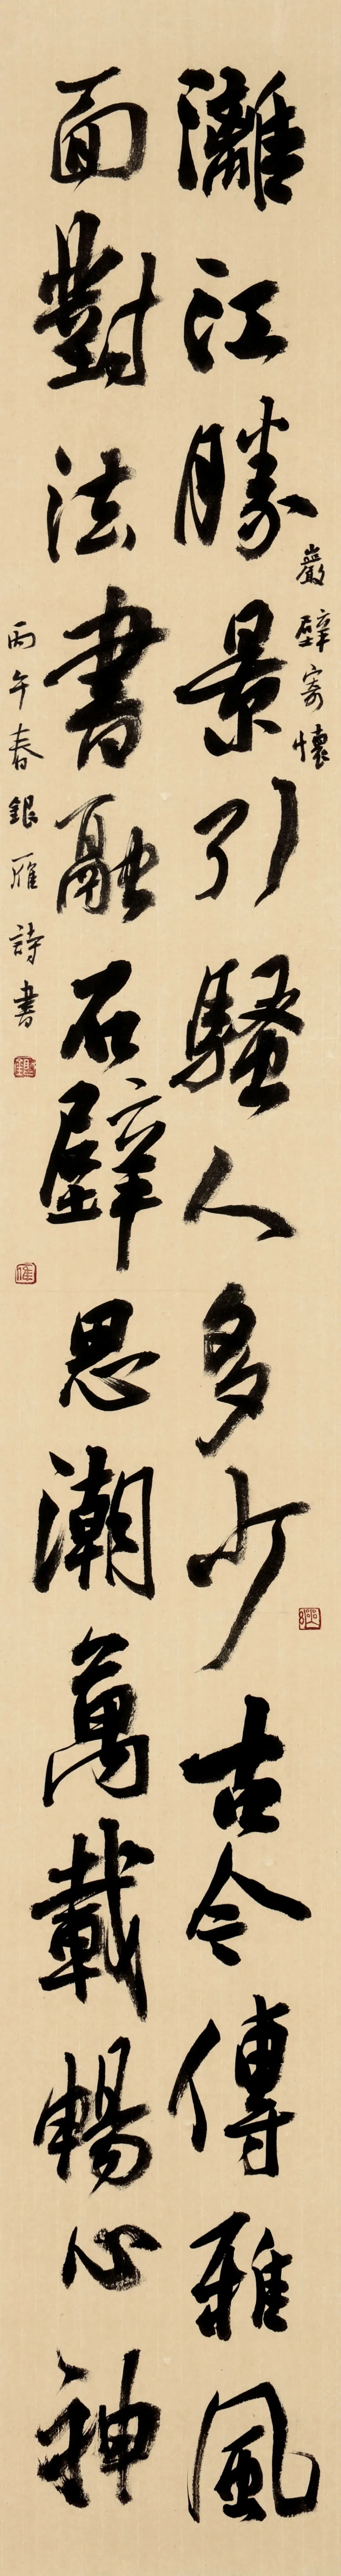 巖壁寄懷
灕江勝景引騷人多少古今傳雅風
面對法書融石壁思潮萬載暢心神
丙午春銀雁詩書